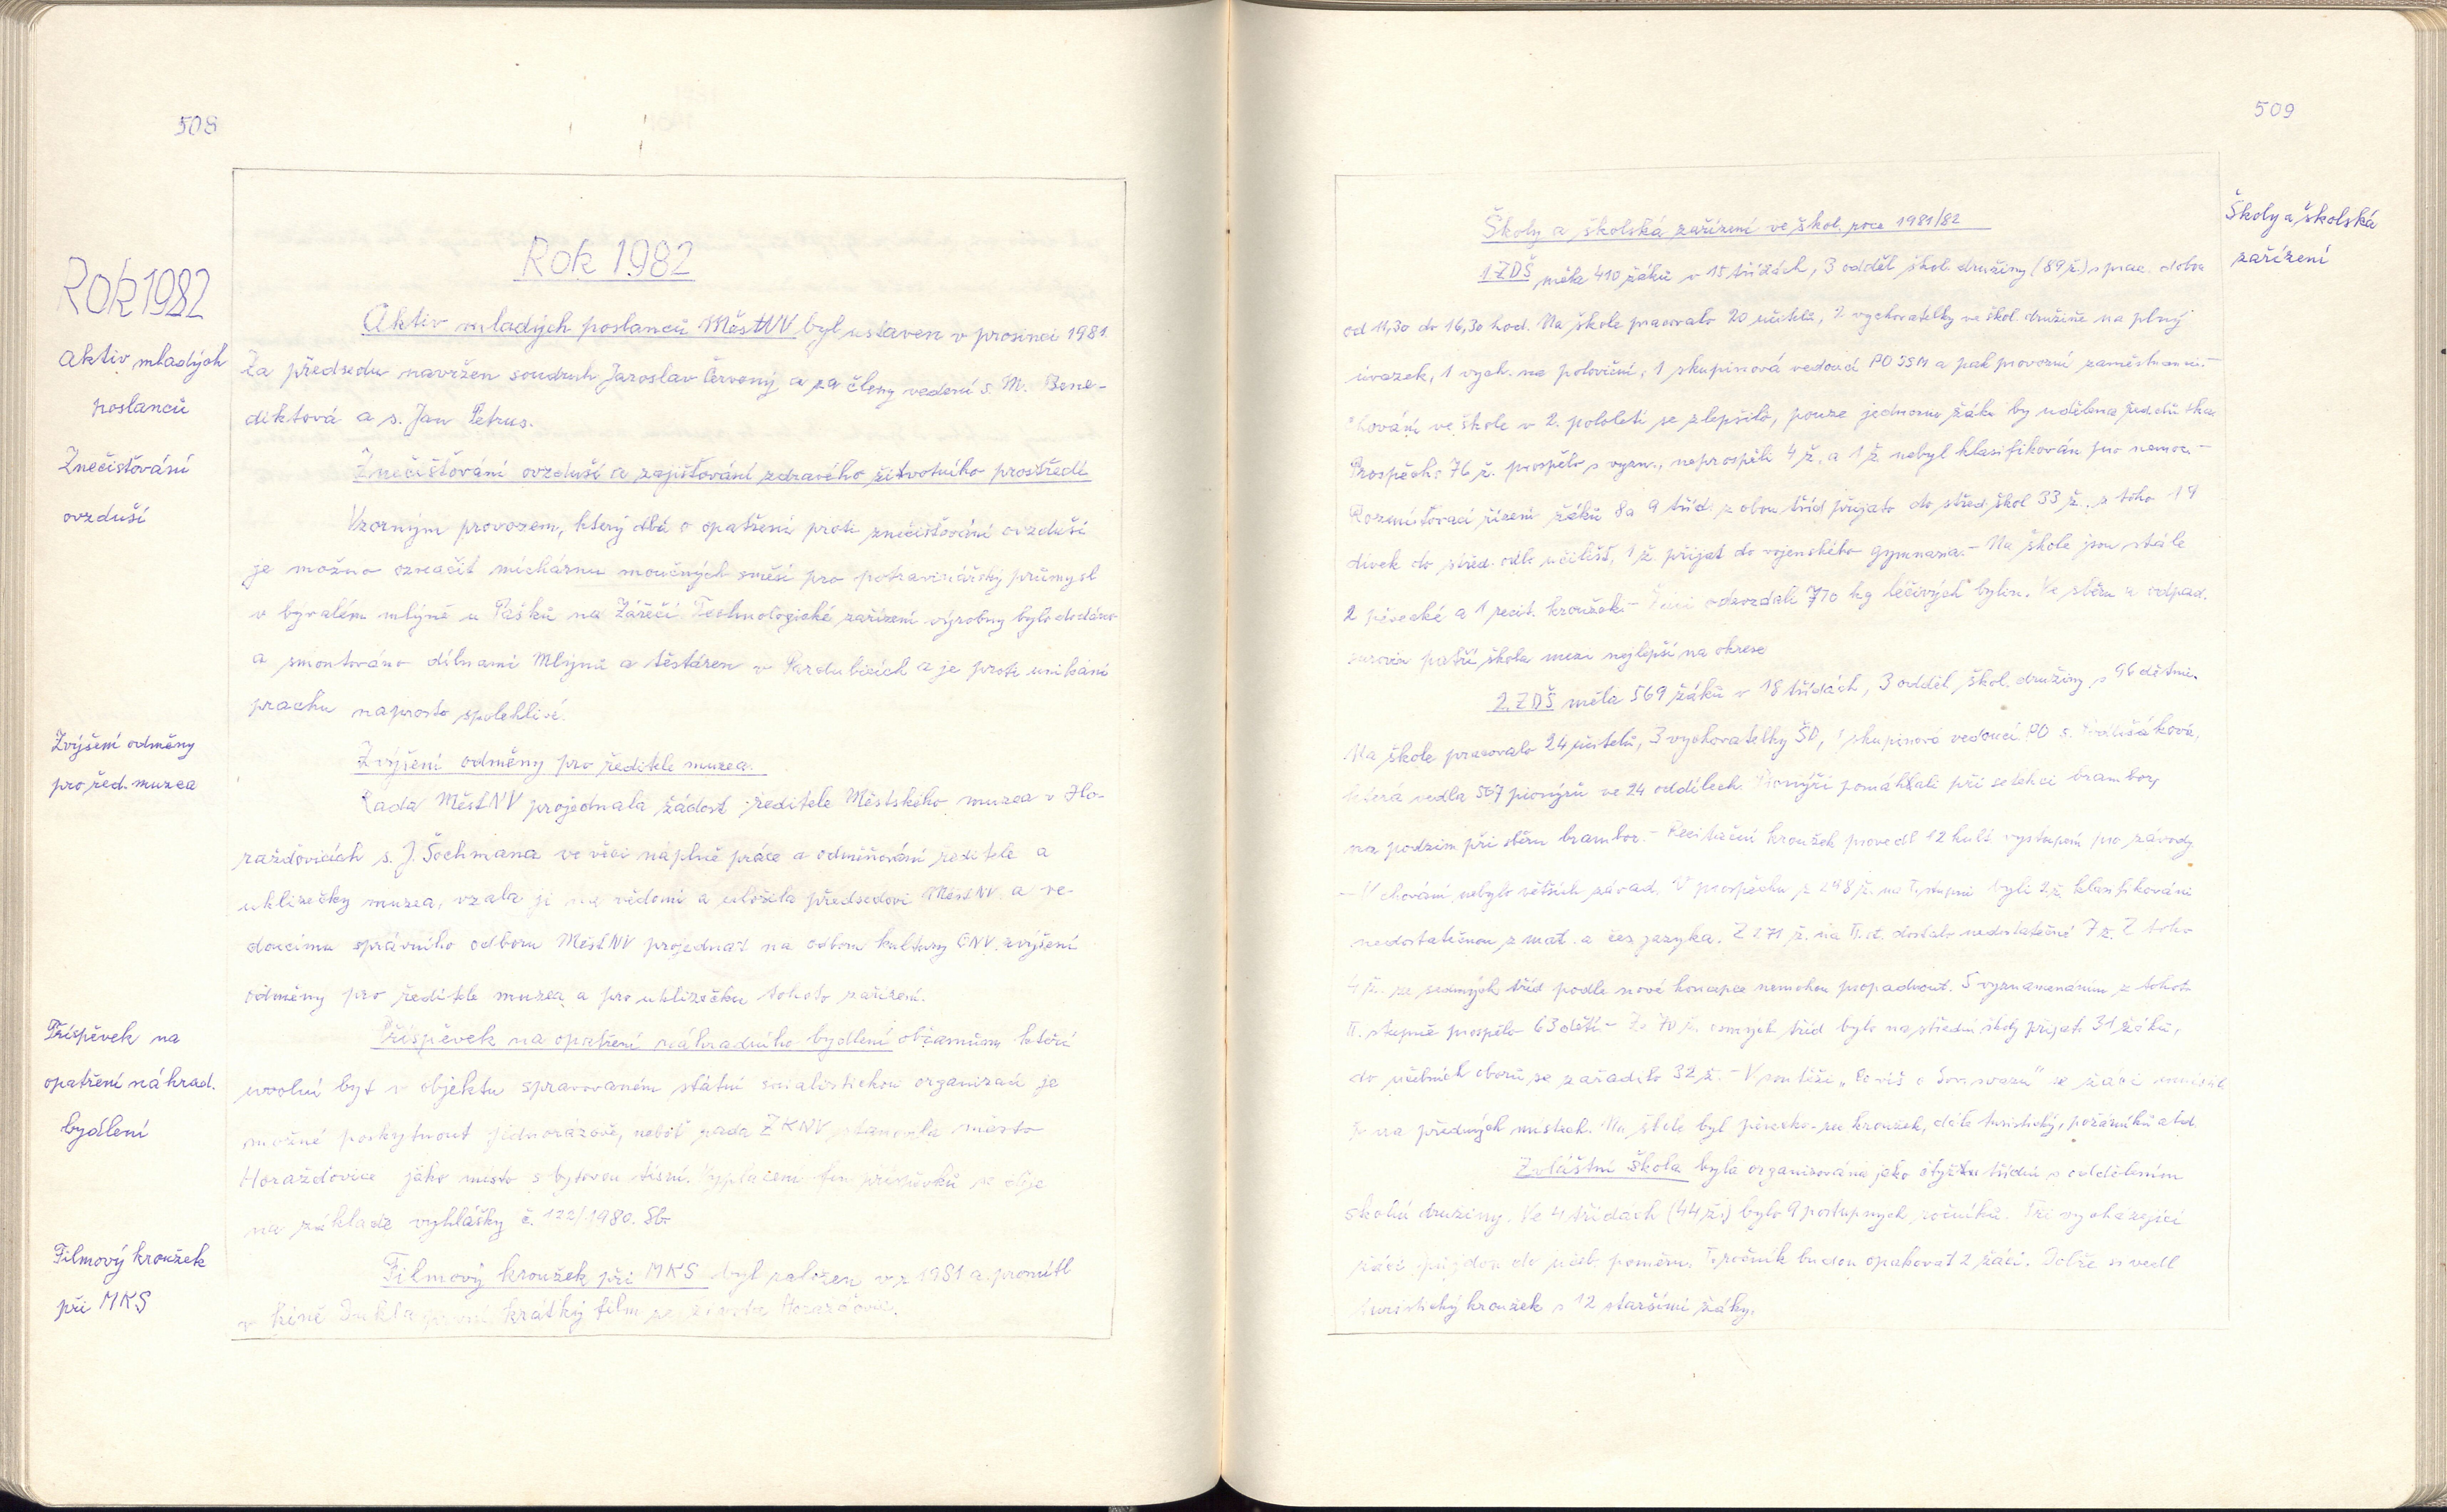 508
Rok 1982
Rok 1982
Aktiv mladých
poslanců
Aktiv mladých poslanců MěstNV byl ustaven v prosinci 1981.
Za předsedu navržen soudruh Jaroslav Červený a za členy vedení s. M. Bene-
diktová a s. Jan Petrus.
Znečisťování
ovzduší
Znečišťování ovzduší a zajišťování zdravého životního prostředí
Vzorným provozem, který dbá o opatření proti znečisťování ovzduší
je možno označit míchárnu moučných směsí pro potravinářský průmysl
v bývalém mlýně u Pašků na Zářečí. Technologické zařízení výrobny bylo dodáno
a smontováno dílnami Mlýnů a těstáren v Pardubicích a je proti unikání
prachu naprosto spolehlivé.
Zvýšení odměny
pro řed. muzea
Zvýšení odměny pro ředitele muzea.
Rada MěstNV projednala žádost ředitele Městského muzea v Ho-
ražďovicích s. J. Šochmana ve věci náplně práce a odměňování ředitele a
uklízečky muzea, vzala ji na vědomí a uložila předsedovi MěstNV a ve-
doucímu správního odboru MěstNV projednat na odboru kultury ONV zvýšení
odměny pro ředitele muzea a pro uklizečku tohoto zařízení.
Příspěvek na
opatření náhrad.
bydlení
Příspěvek na opatření náhradního bydlení občanům, kteří
uvolní byt v objektu spravovaném státní socialistickou organizací je
možné poskytnout jednorázově, neboť rada ZKNV stanovila město
Horažďovice jako místo s bytovou tísní. Vyplacení příspěvků se děje
na základě vyhlášky č. 122/1980. Sb.
Filmový kroužek
při MKS
Filmový kroužek při MKS byl založen v r 1981 a promítl
v kině Dukla první krátký film ze života Horažďovic.
509
Školy a školská
zařízení
Školy a školská zařízení ve škol. roce 1981/82
1 ZDŠ měla 410 žáků v 15 třídách, 3 odděl. škol. družiny (89 ž.) s prac. dobou
od 11,30 do 16,30 hod. Na škole pracovalo 20 učitelů, 2 vychovatelky ve škol. družině na plný
úvazek, 1 vych. na poloviční, 1 skupinová vedoucí PO SSM a pak provozní zaměstnanci.-
Chování ve škole v 2. pololetí se zlepšilo, pouze jednomu žáku by udělena řed. důtka
Prospěch: 76 ž. prospělo s vyzn., neprospěli 4 ž. a 1 ž. nebyl klasifikován pro nemoc.-
Rozmisťovací řízení žáků 8 a 9 tříd. z obou tříd přijato do střed. škol 33 ž., z toho 19
dívek do střed. odb. učilišť, 1 ž. přijat do vojenského gymnasia.- Na škole jsou stále
2 pěvecké a 1 recit. kroužek.- Žáci odevzdali 770 kg léčivých bylin. Ve sběru odpad.
surovin patří škola mezi nejlepší na okrese
2. ZDŠ měla 569 žáků v 18 třídách, 3 odděl. škol. družiny s 96 dětmi.
Na škole pracovalo 24 učitelů, 3 vychovatelky ŠD, 1 skupinová vedoucí PO s.
která vedla 567 pionýrů ve 24 oddílech. Pionýři pomáhali při selekci brambor,
na podzim při sběru brambor.- Recitační kroužek provedl 12 kult. vystoupení pro závody
- V chování nebylo větších závad. V prospěchu z 298 ž. na I. stupni byli 2 ž. klasifikováni
nedostatečnou z mat. a čes. jazyka. Z 271 ž. na II. st. dostalo nedostatečné 7 ž. Z toho
4 ž. ze sedmých tříd podle nové koncepce nemohou propadnout. S vyznamenáním z tohoto
II. stupně prospělo 63 dětí - Ze 70 ž. osmých tříd bylo na střední školy přijato 31 žáků,
do učebních oborů se zařadilo 32 ž. - V soutěži „Co víš o Sov. svazu" se žáci umístili
na předních místech. Na škole byl pěvecko-rec. kroužek, dále turistický, požárníků atd.
Zvláštní škola byla organizována jako čtyřtřídní s oddělením
školní družiny. Ve 4 třídách (44 ž.) bylo 9 postupných ročníků. Tři vycházející
žáci půjdou do učeb. poměru. I. ročník budou opakovat 2 žáci. Dobře si vedl
turistický kroužek s 12 staršími žáky.